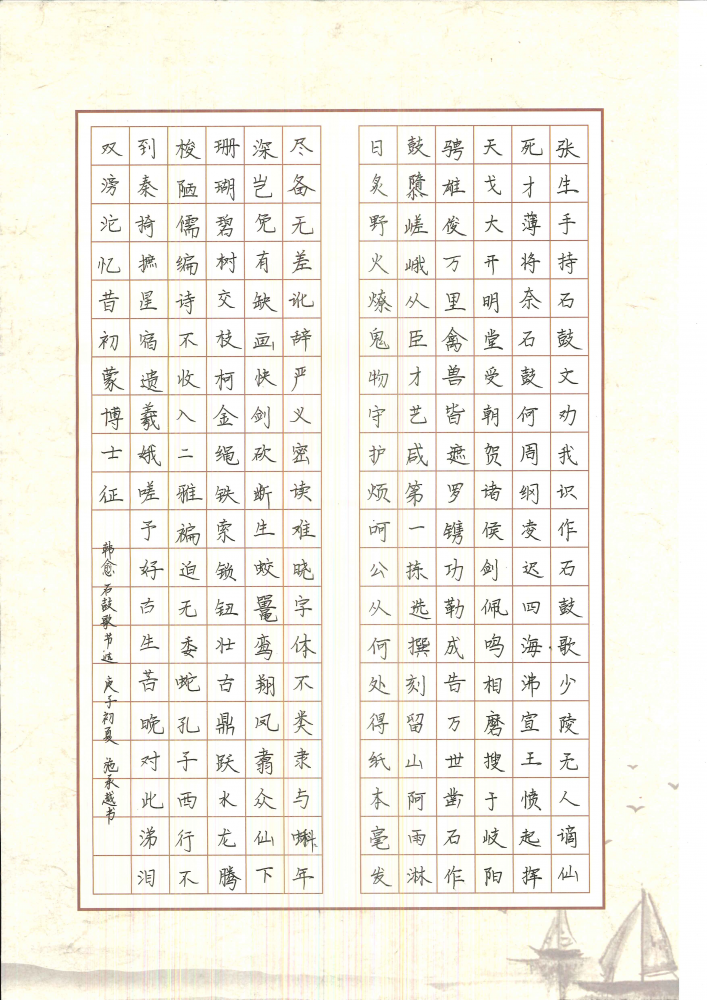 张生手持石鼓文劝我识作石鼓歌少陵无人谪仙
死才薄将奈石鼓何周纲凌迟四海沸宣王愤起挥
天戈大开明堂受朝贺诸侯剑佩鸣相磨搜于岐阳
骋雄俊万里禽兽皆遮罗镌功勒成告万世凿石作
鼓隳嵯峨从臣才艺咸第一拣选撰刻留山阿雨淋
日炙野火燎鬼物守护烦呵公从何处得纸本毫发
尽备无差讹辞严义密读难晓字体不类隶与蝌年
深岂免有缺画快剑砍断生蛟鼍鸾翔凤翥众仙下
珊瑚碧树交枝柯金绳铁索锁钮壮古鼎跃水龙腾
梭陋儒编诗不收入二雅褊迫无委蛇孔子西行不
到秦掎摭星宿遗羲娥嗟予好古生苦晚对此涕泪
双滂沱忆昔初蒙博士征
韩愈石鼓歌节选 庚子初夏 施承越书